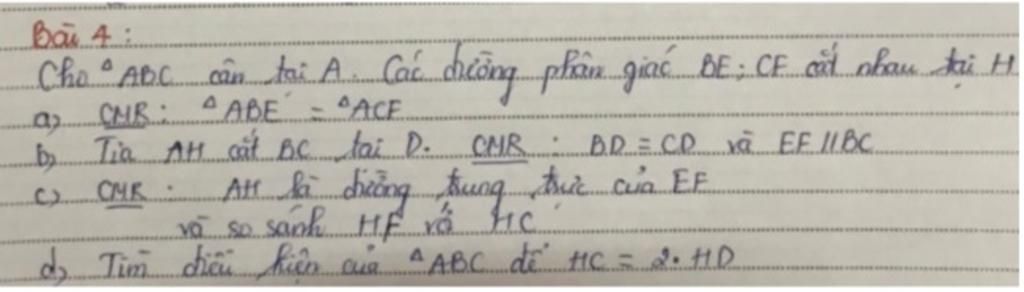 Bài 4 :
Cho ΔABC cân tại A. Các đường phân giác BE ; CF cắt nhau tại H
a) CMR : ΔABE = ΔACF
b) Tia AH cắt BC tại D. CMR : BD = CD và EF // BC
c) CMR : AH là đường trung trực của EF
và so sánh HF với HC
d) Tìm điều kiện của ΔABC để HC = 2.HD